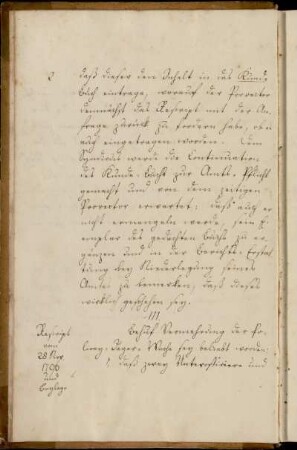 2
daß dieser den Inhalt in das Kunde
buch eintrage, worauf der Prorector
demnächst das Rescript mit der An-
frage zurück zu fordern habe, ob
auch eingetragen worden. Dem
Syndicus werde die Continuation
des Kunde-Buchs zur Amts-Pflicht
gemacht und von dem zeitigen
Prorector erwartet: daß auch er
nicht ermangeln werde, sein E-
xemplar des gedachten Buchs zu er-
gänzen und in der Berichts-Erstat-
tung bey Niederlegung seines
Amtes zu bemerken, daß dieses
wirklich geschehen sey.
III.
Rescript
vom
28 Nov.
1796
und
Beylage
Behuf Vermehrung der Po-
licey-Jäger-Wache sey beliebt worden:
1, daß zwey Unterofficiere und